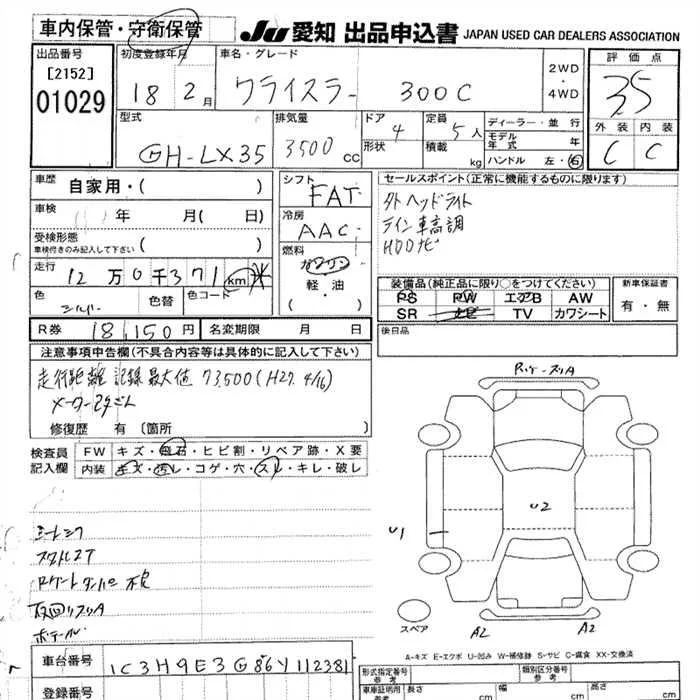 車内保管・守衛保管
JU 愛知 出品申込書 JAPAN USED CAR DEALERS ASSOCIATION
出品番号
[2152]
01029
初度登録年月
18 2月
車名・グレード
クライスラー 300C
2WD
・
4WD
評価点
35
外装 内装
C C
型式
GH-LX35
排気量
3500cc
ドア
4
形状
定員
5人
積載
kg
ディーラー・並行
モデル年式 年
ハンドル 左・右
車歴 自家用・( )
車検 年 月( 日)
受検形態
車検付きのみ記入して下さい ( )
走行
12万0千371km
色
シルバー
色替
色コード
シフト
FAT
冷房
AAC
燃料
ガソリン
・
軽・油
( )
R券 18,150円 名変期限 月 日
セールスポイント(正常に機能するものに限ります)
HDDナビ
装備品(純正品に限り○をつけてください)
PS PW エアB AW
SR ナビ TV カワシート
新車保証書
有・無
後日品
注意事項申告欄(不具合内容等は具体的に記入して下さい)
走行距離 記録最大値 73,500(H27. 4/16)
修復歴 有〔箇所 〕
検査員記入欄
FW キズ・飛石・ヒビ割・リペア跡・X要
内装 キズ・汚レ・コゲ・穴・スレ・キレ・破レ
U2
U1
スペア
A2
A2
A-キズ E-エクボ U-凹み W-補修跡 S-サビ C-腐食 XX-交換済
車台番号 1C3H9E3G86Y112381
登録番号
形式指定番号
参考
類別区分番号
参考
車庫証明用
参考
長さ cm
幅 cm
高さ cm